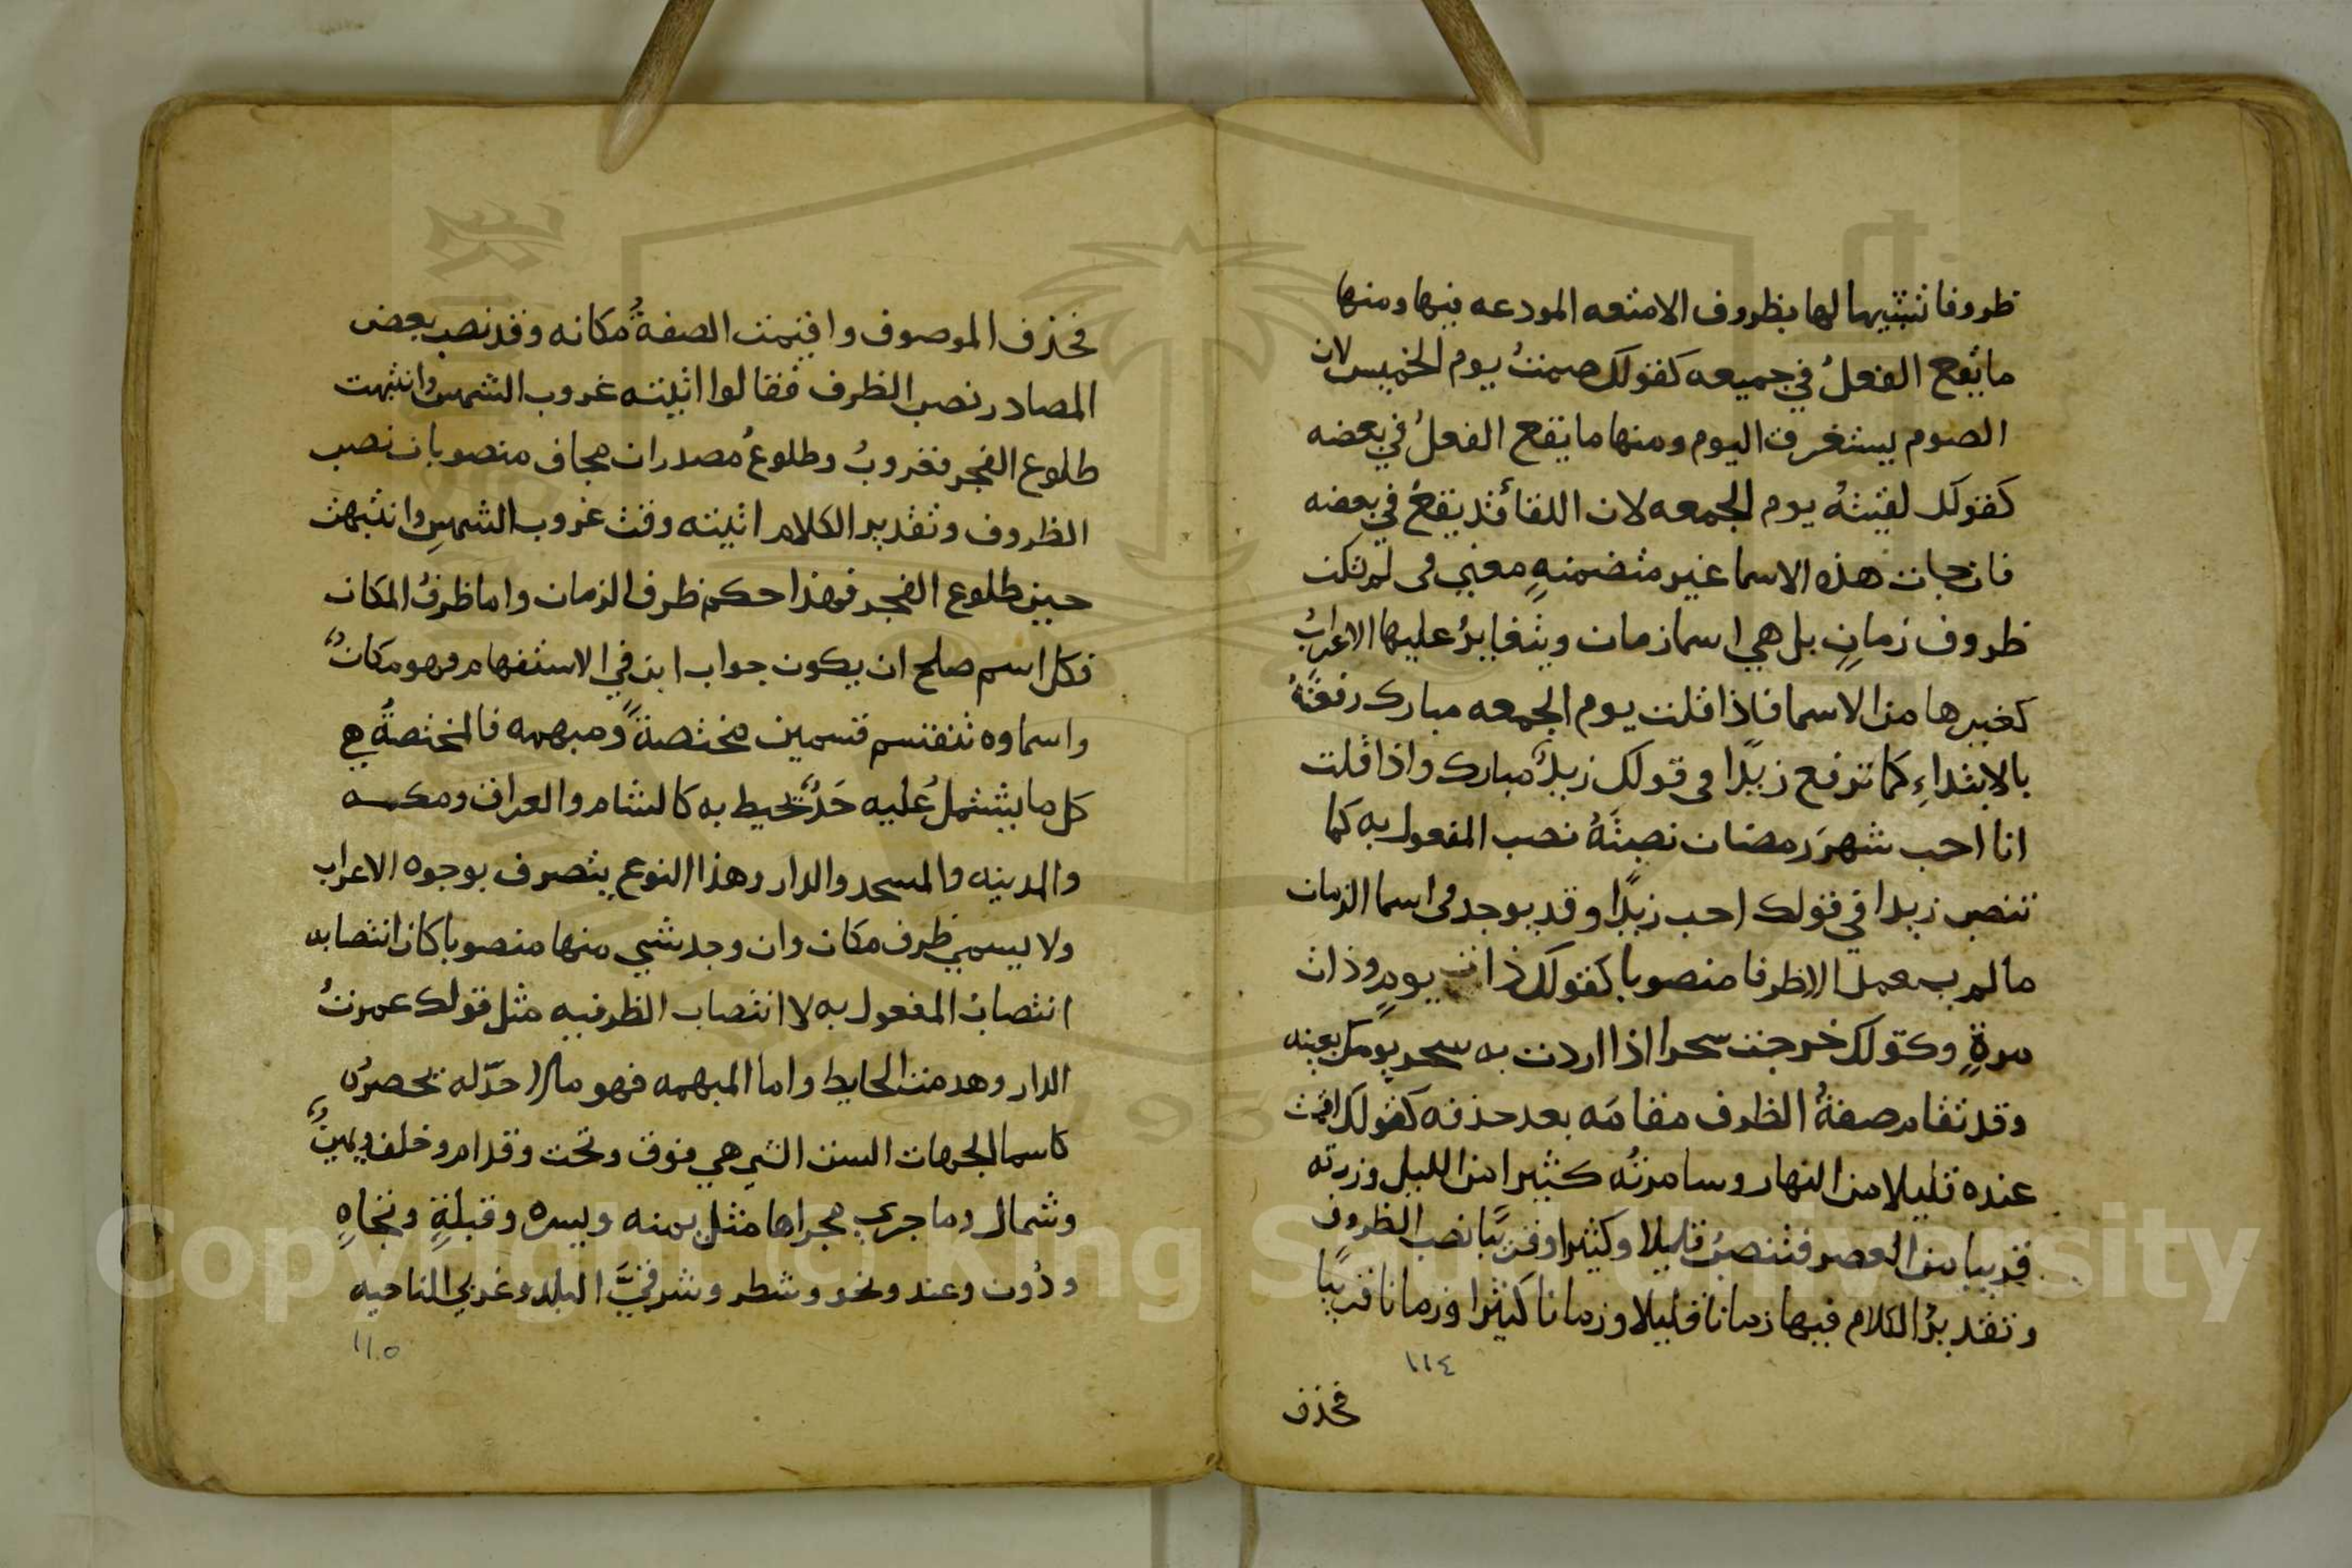 ظروفا تشبيها لها بظروف الامتعه المودعه فيها ومنها
ما يقع الفعلُ في جميعه كقولك صمتُ يوم الخميس لان
الصوم يستغرق اليوم ومنها ما يقع الفعلُ في بعضه
كقولك لقيتهُ يوم الجمعه لان اللقا قد يقعُ في بعضه
فان جات هذه الاسما غير متضمنهٍ معني في لم تكن
ظروف زمانٍ بل هي اسما زمان ويتغايرُ عليها الاعرابُ
كغيرها من الاسما فاذا قلت يوم الجمعه مبارك رفعتَهُ
بالابتداءِ كما ترفع زيدًا في قولك زيدٌ مبارك واذا قلت
انا احب شهرَ رمضان نصبتَهُ نصب المفعول به كما
تنصب زيدا في قولك احب زيدًا وقد يوجد في اسما الزمان
ما لم يستعمل الا ظرفا منصوبا كقولك ذات يومٍ وذات
مرةٍ وكقولك خرجت سحرا اذا اردت به سحر يومك بعينه
وقد تقام صفةُ الظرف مقامَه بعد حذفه كقولك اقمت
عنده قليلا من النهار وسامرتُه كثيرا من الليل وزرته
قريبا من العصر فتنصبُ قليلا وكثيرا وقريبًا نصب الظروف
وتقديرُ الكلام فيها زمانا قليلا وزمانا كثيرا وزمانا قريبًا
١١٤
فحذف
فحذف الموصوف واقيمت الصفةُ مكانه وقد نصب بعض
المصادر نصب الظرف فقالوا اتيته غروب الشمس وانتبهت
طلوع الفجر فغروبُ وطلوعُ مصدران مجاف منصوبان نصب
الظروف وتقدير الكلام اتيته وقت غروب الشمسِ وانتبهت
حين طلوع الفجر فهذا حكم ظرف الزمان واما ظرفُ المكان
فكل اسم صلح ان يكون جواب اين في الاستفهام فهو مكانٌ
واسماوه تنقسم قسمين مختصةً ومبهمه فالمختصةُ هي
كل ما يشتملُ عليه حَدٌّ يحيط به كالشام والعراق ومكه
والمدينه والمسجد والدار وهذا النوع يتصرف بوجوه الاعراب
ولا يسمي ظرف مكان وان وجد شي منها منصوبا كان انتصابه
انتصابَ المفعول به لا انتصاب الظرفيه مثل قولك عمرتُ
الدار وهدمت الحايط واما المبهمه فهو ما لا حدّ له يحصرُه
كاسما الجهات الست التي هي فوق وتحت وقدام وخلف ويمينٌ
وشمال وما جري مجراها مثل يمنه ويسره وقبلةٍ وتجاهِ
ودُون وعند ونحو وشطر وشرقيَّ البلد وغربي الناحيه
١١٥
Copyright © King Saud University